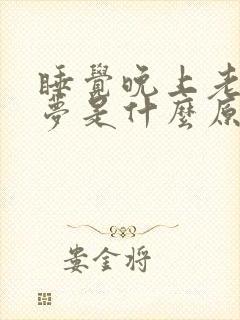 睡覺晚上老
夢是什麼原
娄金将